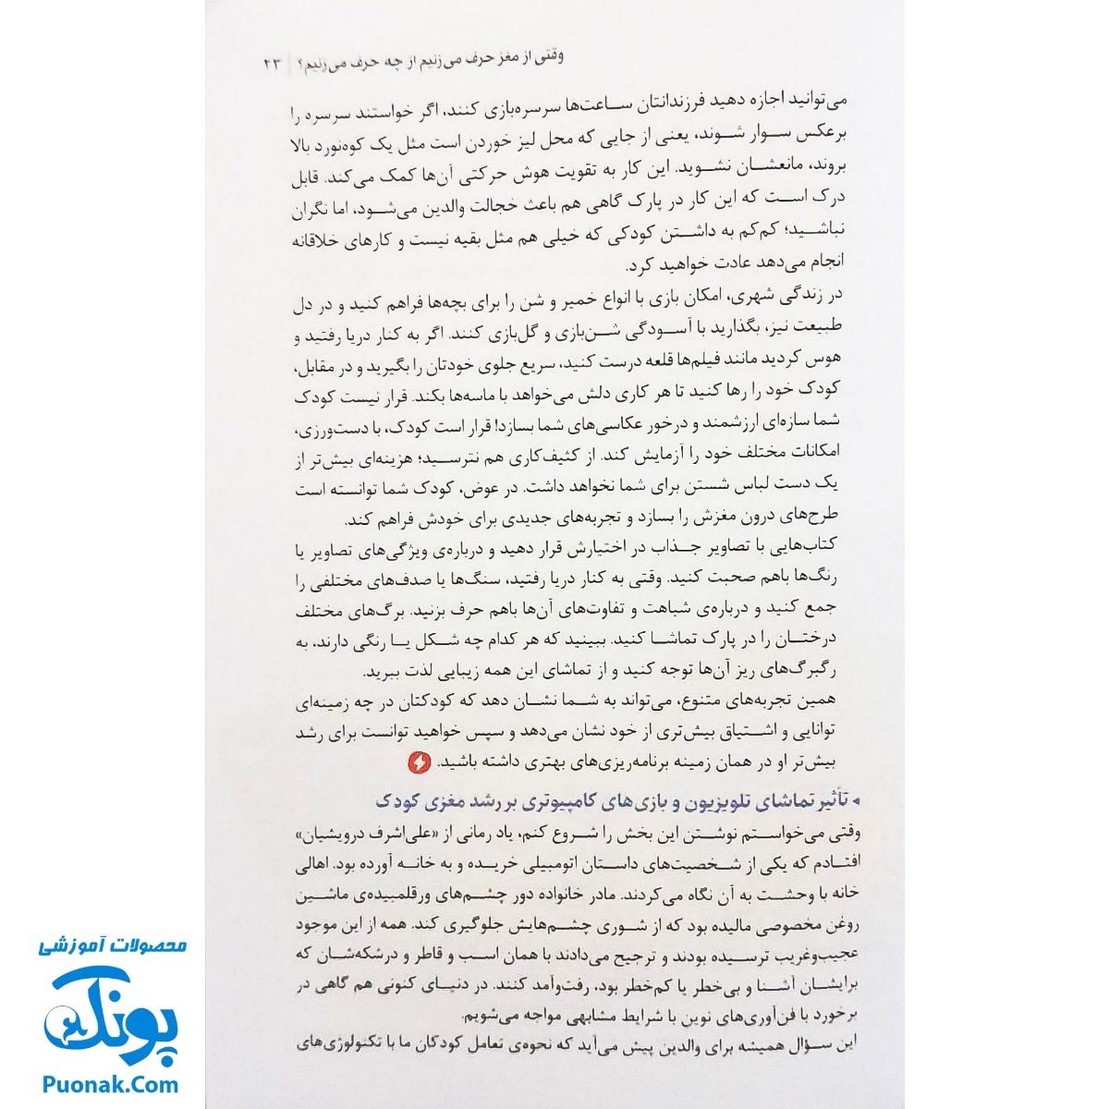 وقتی از مغز حرف می‌زنیم از چه حرف می‌زنیم؟ | ۲۳
می‌توانید اجازه دهید فرزندانتان ساعت‌ها سرسره‌بازی کنند، اگر خواستند سرسره را
برعکس سوار شوند، یعنی از جایی که محل لیز خوردن است مثل یک کوه‌نورد بالا
بروند، مانعشان نشوید. این کار به تقویت هوش حرکتی آن‌ها کمک می‌کند. قابل
درک است که این کار در پارک گاهی هم باعث خجالت والدین می‌شود، اما نگران
نباشید؛ کم‌کم به داشتن کودکی که خیلی هم مثل بقیه نیست و کارهای خلاقانه
انجام می‌دهد عادت خواهید کرد.
در زندگی شهری، امکان بازی با انواع خمیر و شن را برای بچه‌ها فراهم کنید و در دل
طبیعت نیز، بگذارید با آسودگی شن‌بازی و گل‌بازی کنند. اگر به کنار دریا رفتید و
هوس کردید مانند فیلم‌ها قلعه درست کنید، سریع جلوی خودتان را بگیرید و در مقابل،
کودک خود را رها کنید تا هر کاری دلش می‌خواهد با ماسه‌ها بکند. قرار نیست کودک
شما سازه‌ای ارزشمند و درخور عکاسی‌های شما بسازد! قرار است کودک، با دست‌ورزی،
امکانات مختلف خود را آزمایش کند. از کثیف‌کاری هم نترسید؛ هزینه‌ای بیش‌تر از
یک دست لباس شستن برای شما نخواهد داشت. در عوض، کودک شما توانسته است
طرح‌های درون مغزش را بسازد و تجربه‌های جدیدی برای خودش فراهم کند.
کتاب‌هایی با تصاویر جذاب در اختیارش قرار دهید و درباره‌ی ویژگی‌های تصاویر یا
رنگ‌ها باهم صحبت کنید. وقتی به کنار دریا رفتید، سنگ‌ها یا صدف‌های مختلفی را
جمع کنید و درباره‌ی شباهت و تفاوت‌های آن‌ها باهم حرف بزنید. برگ‌های مختلف
درختان را در پارک تماشا کنید. ببینید که هر کدام چه شکل یا رنگی دارند، به
رگبرگ‌های ریز آن‌ها توجه کنید و از تماشای این همه زیبایی لذت ببرید.
همین تجربه‌های متنوع، می‌تواند به شما نشان دهد که کودکتان در چه زمینه‌ای
توانایی و اشتیاق بیش‌تری از خود نشان می‌دهد و سپس خواهید توانست برای رشد
بیش‌تر او در همان زمینه برنامه‌ریزی‌های بهتری داشته باشید.
تأثیر تماشای تلویزیون و بازی‌های کامپیوتری بر رشد مغزی کودک
وقتی می‌خواستم نوشتن این بخش را شروع کنم، یاد رمانی از «علی‌اشرف درویشیان»
افتادم که یکی از شخصیت‌های داستان اتومبیلی خریده و به خانه آورده بود. اهالی
خانه با وحشت به آن نگاه می‌کردند. مادر خانواده دور چشم‌های ورقلمبیده‌ی ماشین
روغن مخصوصی مالیده بود که از شوری چشم‌هایش جلوگیری کند. همه از این موجود
عجیب‌وغریب ترسیده بودند و ترجیح می‌دادند با همان اسب و قاطر و درشکه‌شان که
برایشان آشنا و بی‌خطر یا کم‌خطر بود، رفت‌وآمد کنند. در دنیای کنونی هم گاهی در
برخورد با فن‌آوری‌های نوین با شرایط مشابهی مواجه می‌شویم.
این سؤال همیشه برای والدین پیش می‌آید که نحوه‌ی تعامل کودکان ما با تکنولوژی‌های
محصولات آموزشی
پونک
Puonak.Com